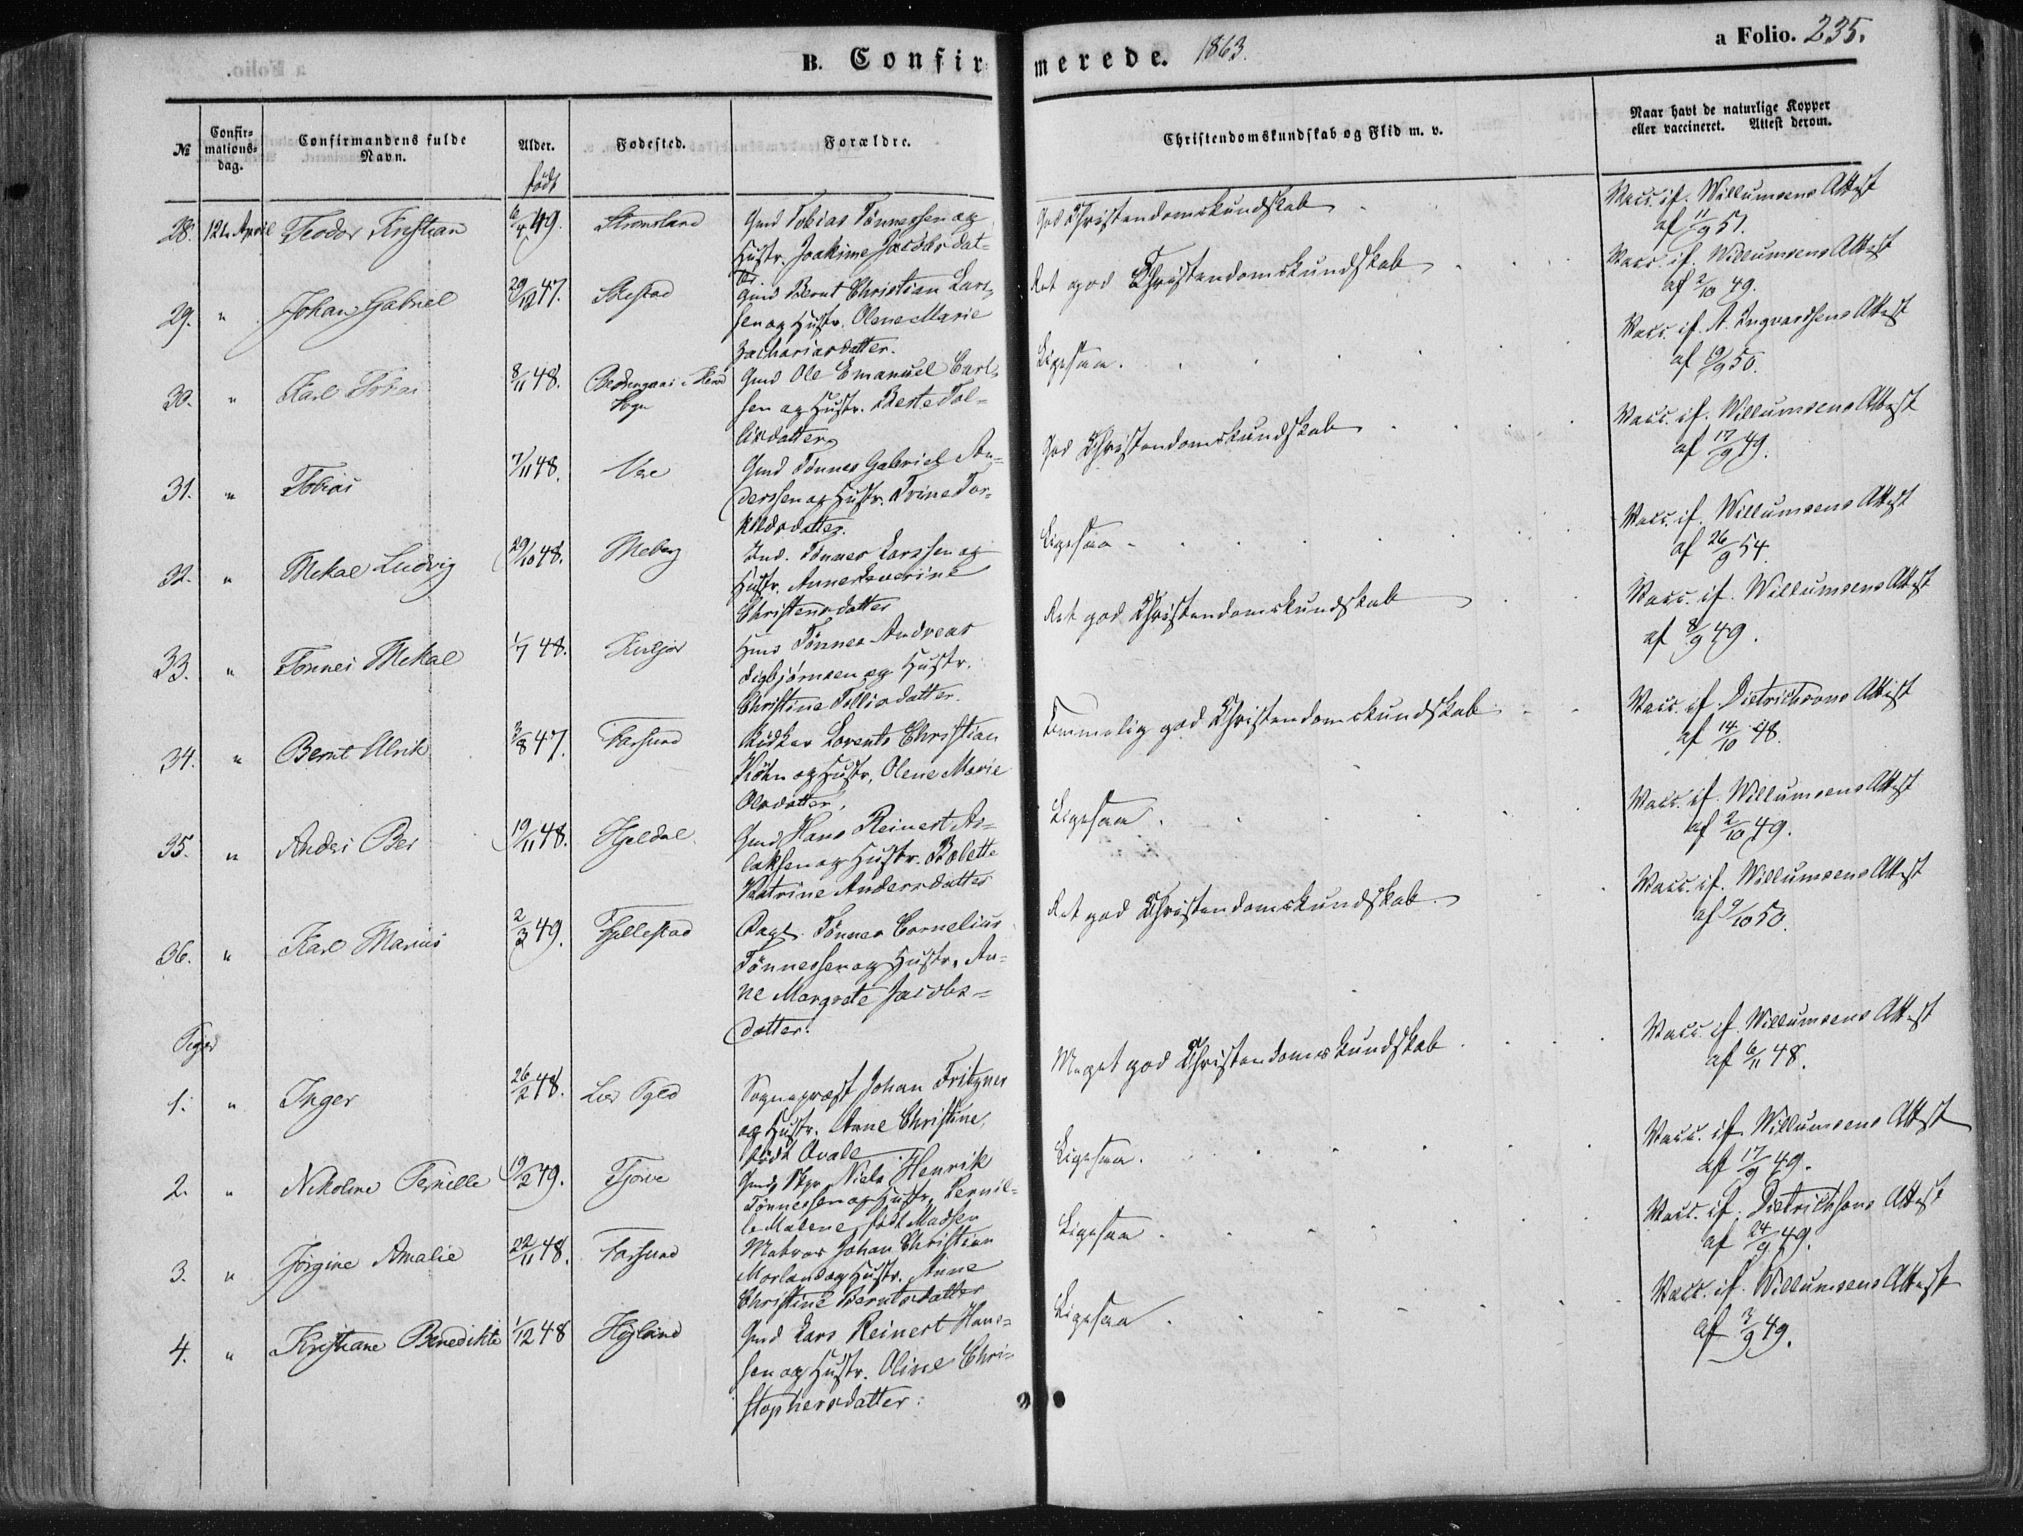 B. Confirmerede. 1863.
a Folio. 235.
№
Confirmations-dag.
Confirmandens fulde Navn.
Alder.
født
Fødested.
Forældre.
Christendomskundskab og Flid m. v.
Naar havt de naturlige Kopper eller vaccineret. Attest derom.
28. 12te April Teodor Kristian 6/4 49. Strømsland
Gmd Tobias Tønnessen og
Hustr. Joakime Jacobsdat-
ter
God Christendomskundskab
Vacc. if. Willumsens Attest
af 11/9 51.
29. " Johan Gabriel 29/12 47.
Gmd Bernt Christian Lars-
sen og Hustr. Olene Marie
Zachariasdatter.
Ret god Christendomskundskab
Vacc. if. Willumsens Attest
af 2/10 49.
30. " Karl Tobias 8/11 48.
Sogn
Gmd Ole Emanuel Carl-
sen og Hustr. Berte Tol-
lisdatter
Ligesaa.
Vacc. if. A. Ingvardsens Attest
af 19/9 50.
31. " Tobias 7/11 48.
Gmd Tønnes Gabriel An-
derssen og Hustr. Trine Tor-
kildsdatter.
God Christendomskundskab
Vacc. if. Willumsens Attest
af 17/9 49.
32. " Mekal Ludvig 29/10 48. Meberg
Ind. Tønnes Larssen og
Hustr. Anne Severine
Christensdatter
Ligesaa
Vacc. if. Willumsens Attest
af 26/9 54.
33. " Tønnes Mekal 1/7 48.
Hmd Tønnes Andreas
Sigbjørnsen og Hustr.
Christine Tollisdatter.
Ret god Christendomskundskab
Vacc. if. Willumsens Attest
af 8/9 49.
34. " Bernt Ulrik 3/8 47. Farsund
Lorents Christian
og Hustr. Olene Marie
Olsdatter.
Temmelig god Christendomskundskab
Vacc. if. Dietrichsons Attest
af 14/10 48.
35. " Anders Ber 19/11 48. Hjeldal.
Gmd Hans Reinert As-
laksen og Hustr. Bolette
Katrine Andersdatter
Ligesaa.
Vacc. if. Willumsens Attest
af 2/10 49.
36. " Karl Marius 2/3 49. Fjellestad
Tønnes Cornelius
Tønnessen og Hustr. An-
ne Margrete Jacobs-
datter.
Ret god Christendomskundskab.
Vacc. if. Willumsens Attest
af 9/10 50.
Piger
1. " Inger 26/2 48.
Sognepræst Johan Fritzner
og Hustr. Anne Christine,
født Qvale
Meget god Christendomskundskab
Vacc. if. Willumsens Attest
af 6/11 48.
2. " Nikoline Pernille 19/2 49. Tjørve
Gmd, Skpr Niels Henrik
Tønnessen og Hustr. Pernil-
le Malene, født Madsen
Ligesaa.
Vacc. if. Willumsens Attest
af 17/9 49.
3. " Jørgine Amalie 22/11 48. Farsund
Matros Johan Christian
Morland og Hustr. Anne
Christine Berntsdatter
Ligesaa
Vacc. if. Dietrichsons Attest
af 24/9 49.
4. " Kristiane Benedikte 1/12 48
Gmd Lars Reinert Hans-
sen og Hustr. Oline Chri-
stophersdatter.
Ligesaa
Vacc. if. Willumsens Attest
af 3/9 49.